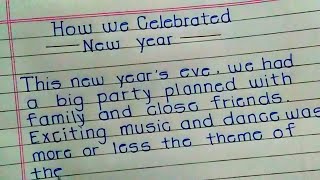 How we Celebrated
New year
This new year's eve, we had
a big party planned with
family and close friends.
Exciting music and dance was
more or less the theme of
the